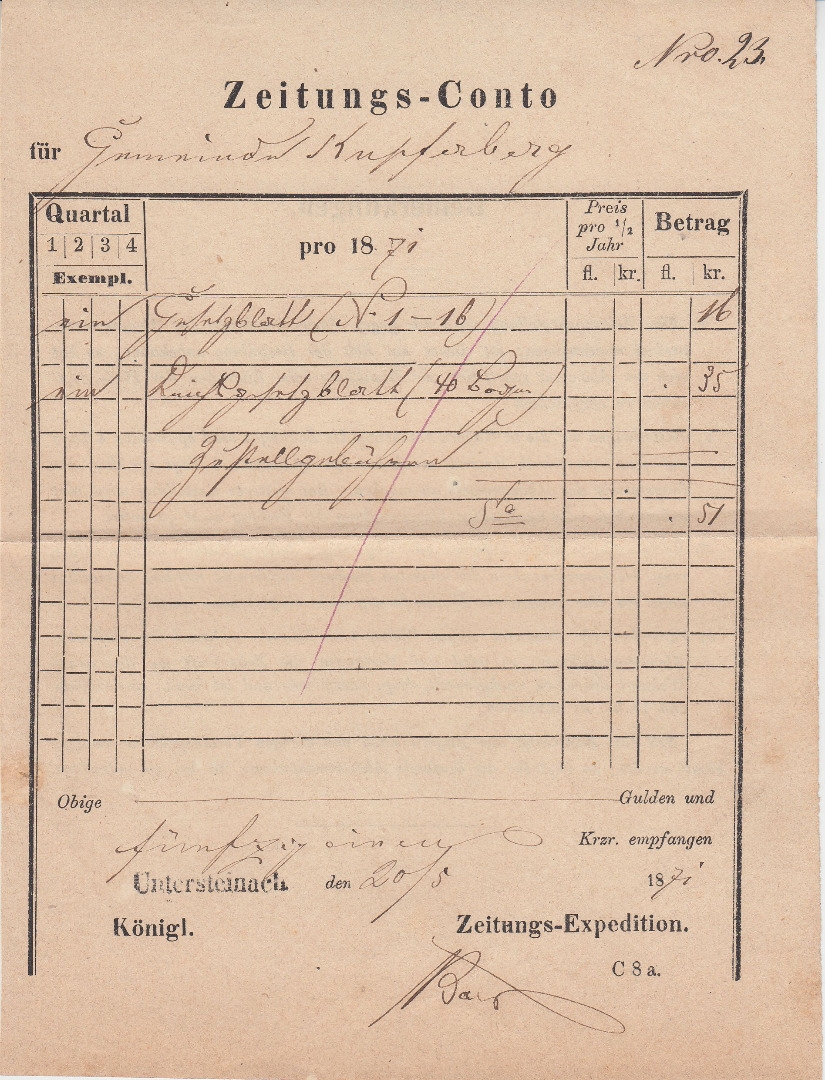 Nro. 23.
Zeitungs-Conto
für Gemeinde Kupferberg
Quartal
1 | 2 | 3 | 4
Exempl.
pro 1871
Preis
pro 1/2
Jahr
fl. kr.
Betrag
fl. kr.
ein Gesetzblatt (N. 1-16) 16
ein Reichsgesetzblatt (40 Bogen) . 35
Zustellgebühren —
Sa . 51
Obige Gulden und
fünfzig einen Krzr. empfangen
Untersteinach den 20/5 1871
Königl. Zeitungs-Expedition.
C 8 a.